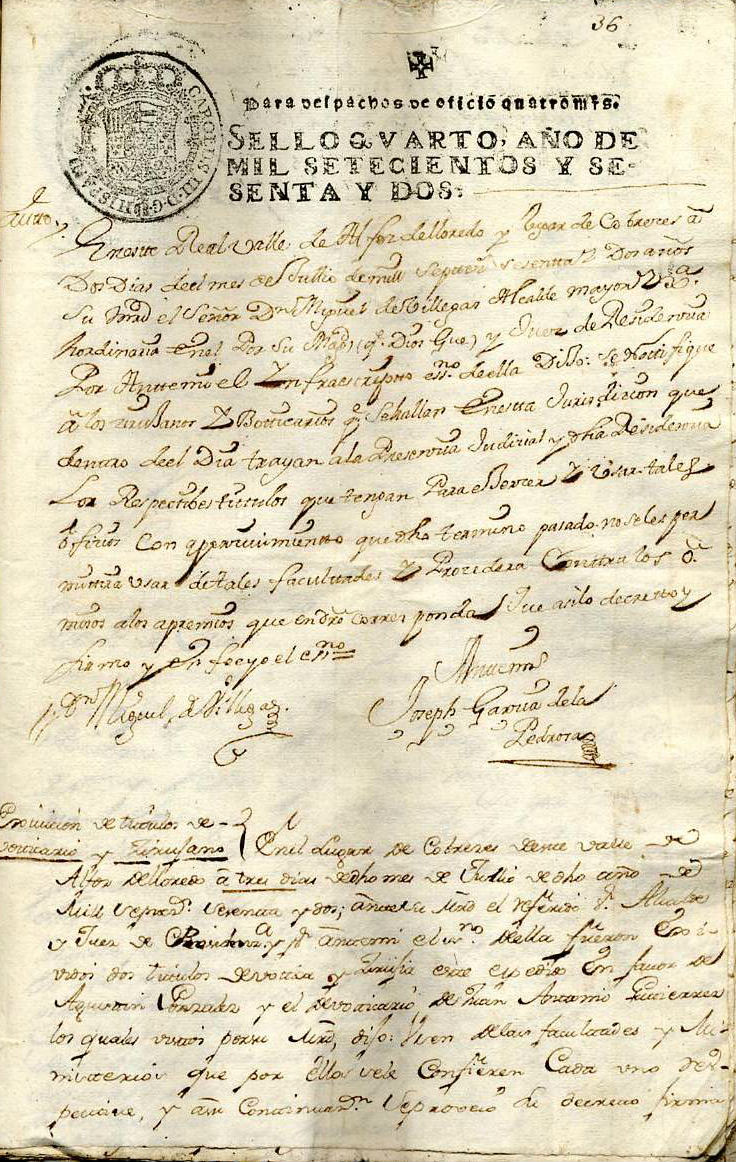 36
Para despachos de oficio quatro mrs.
SELLO QVARTO, AÑO DE
MIL SETECIENTOS Y SE-
SENTA Y DOS:
CAROLUS III D G HISPAN
Autto
En este Real Valle de Alfoz de lloredo y lugar de Cobreces a
Dos Dias de el mes de Jullio de mill Septten.s Sesentta Y Dos años
Su Mrd el Señor Dn Miguel de Villegas Alcalde mayor Y
hordinario en el Por Su Magd (q.e Dios Gue) y Juez de Residencia
Por Anttemi el Ynfraescriptto essno. de ella Dixo: Se Nottifique
a los zirujanos Y Botticarios q.e Se hallan En estta Jurisdizion que
dentro de el Dia traygan a la Presencia Judicial y dha Residencia
Los Respectibes titulos que tengan Para exercer Y Usar tales
ofizios con apercivimientto que dho termino pasado no se les per
mittira usar de tales facultades Y Prozedera Conttra los
misos a los apremios que en dro corresponda, Que asi lo decretto y
firmo y en fee yo el essno
Dn Miguel de Villegas.
Anttemi
Joseph Garcia de la
Pedrosa
Exivicion de titulos de
voticario y Zirujano
En el Lugar de Cobreces de este valle de
Alfoz de lloredo a tres dias de dho mes de Jullio de dho año de
Mil Septez.s sesenta y dos; ante su Mrd el referido s.r Alcalde
y Juez de y p.r ante mi el ess.no della fueron Exi-
vidos dos titulos de votica y Zirujia este expedido En favor de
Agustin Gonzalez y el de voticario, de Juan Antonio Gutierrez
los quales vistos por su Mrd, dijo: Usen de las facultades y Mi
nisterios que por ellos se le Confieren Cada uno res-
pective, y a su Continuaz.n Se proveio de decreto firma